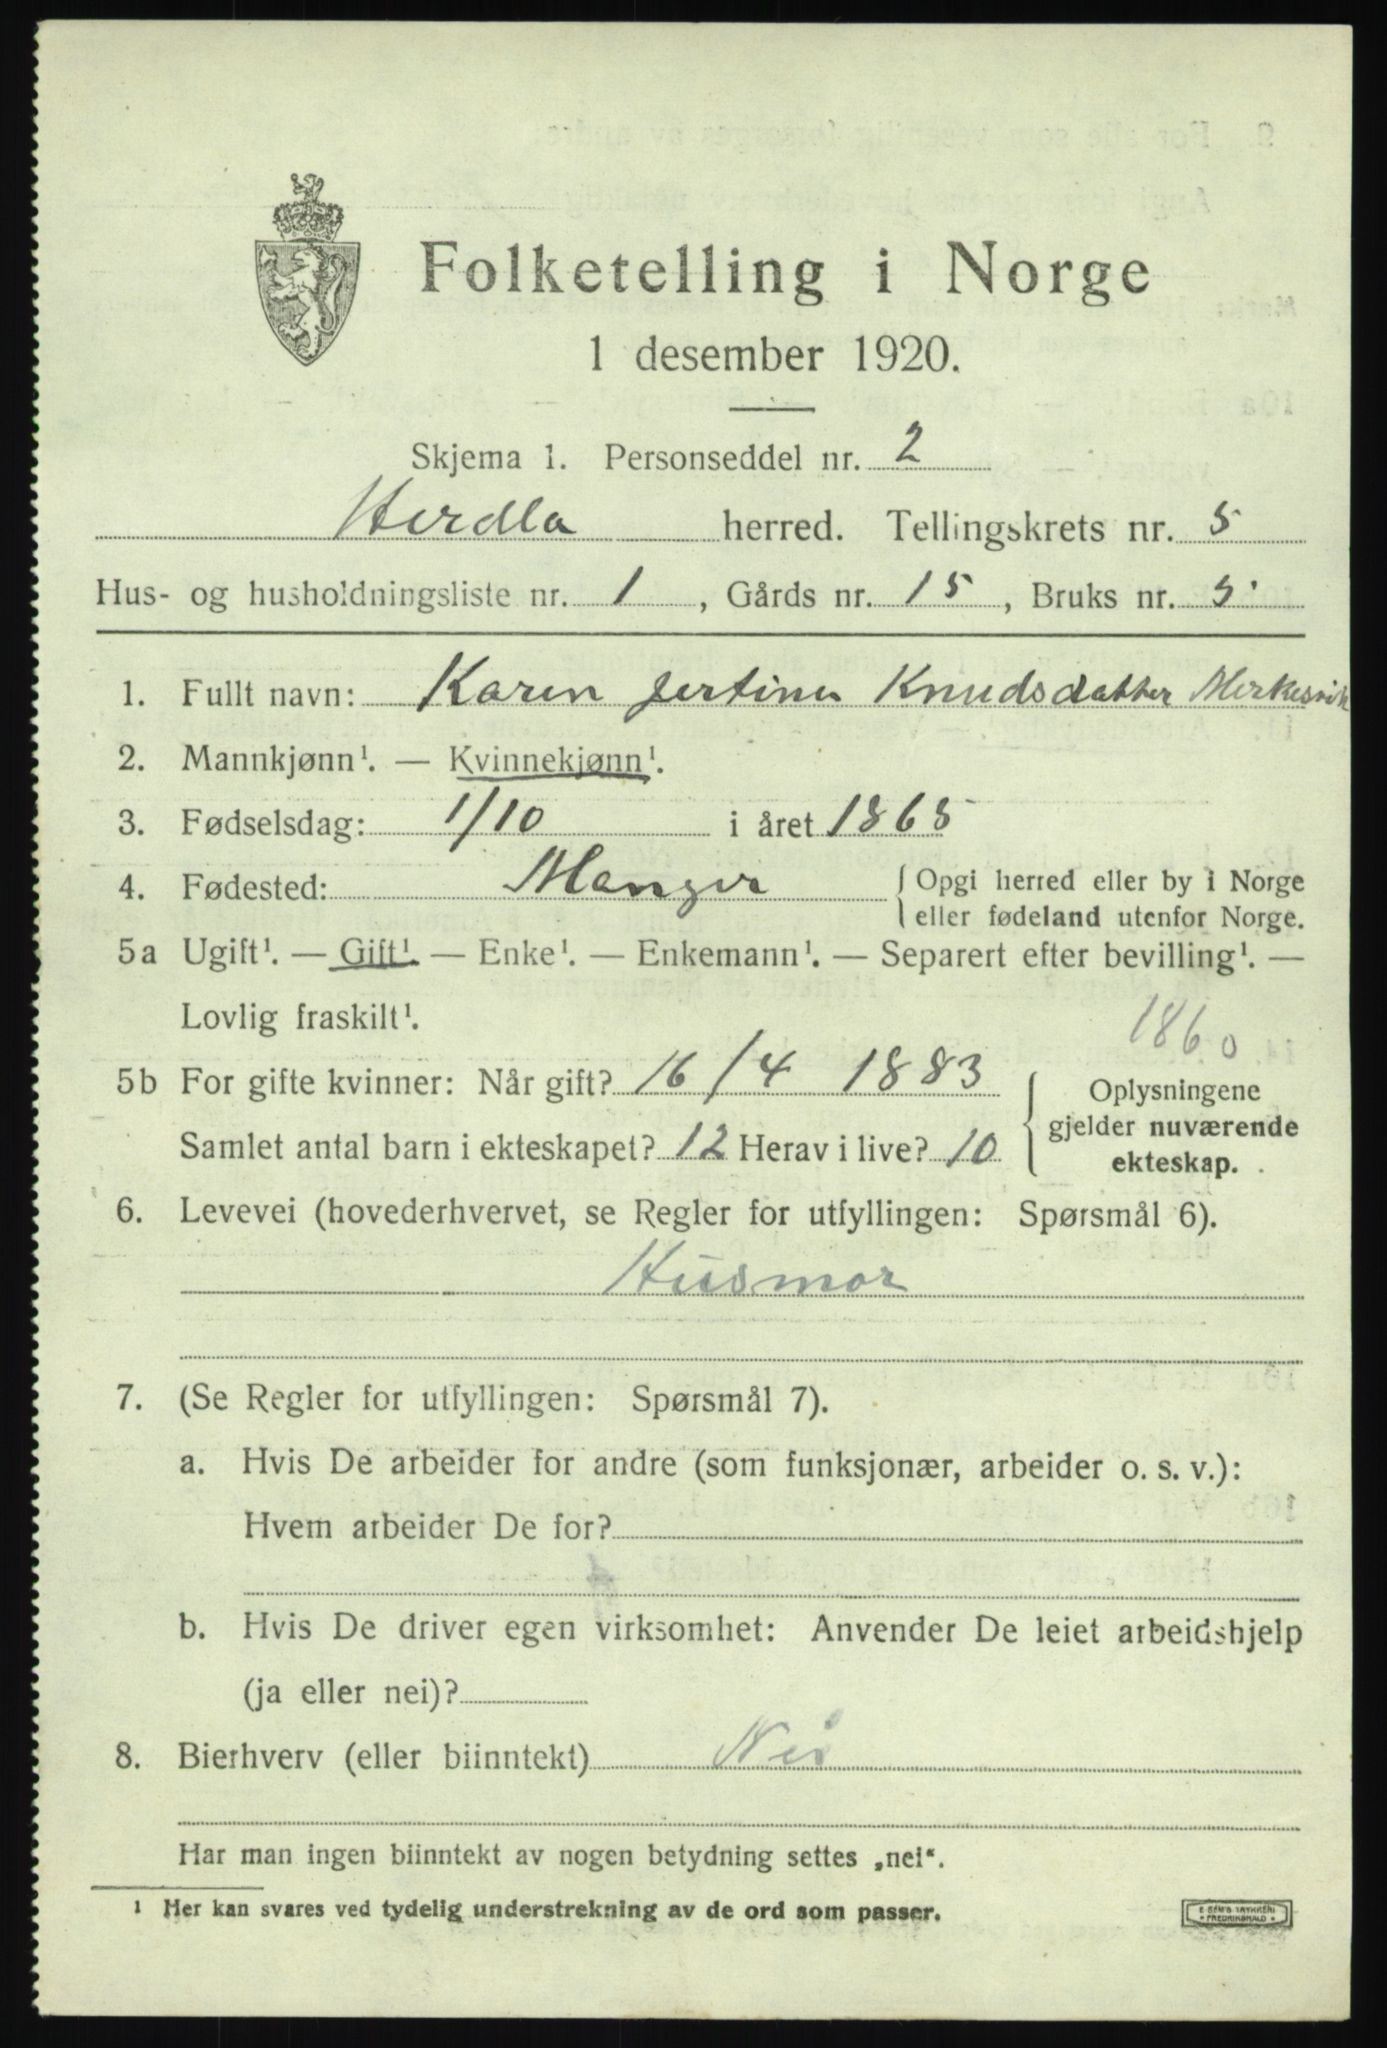 Folketelling i Norge
1 desember 1920.
Skjema 1. Personseddel nr. 2
Herdla herred. Tellingskrets nr. 5
Hus- og husholdningsliste nr. 1, Gårds nr. 15, Bruks nr. 3
1. Fullt navn: Karen Jertine Knudsdatter Merkesvik
2. Mannkjønn¹. — Kvinnekjønn¹.
3. Fødselsdag: 1/10 i året 1865
4. Fødested: Manger { Opgi herred eller by i Norge
eller fødeland utenfor Norge.
5a Ugift¹. — Gift¹. — Enke¹. — Enkemann¹. — Separert efter bevilling¹. —
Lovlig fraskilt¹.
1860
5b For gifte kvinner: Når gift? 16/4 1883 { Oplysningene
gjelder nuværende
Samlet antal barn i ekteskapet? 12 Herav i live? 10
ekteskap.
6. Levevei (hovederhvervet, se Regler for utfyllingen: Spørsmål 6).
Husmor
7. (Se Regler for utfyllingen: Spørsmål 7).
a. Hvis De arbeider for andre (som funksjonær, arbeider o. s. v.):
Hvem arbeider De for?
b. Hvis De driver egen virksomhet: Anvender De leiet arbeidshjelp
(ja eller nei)?
8. Bierhverv (eller biinntekt) Nei
Har man ingen biinntekt av nogen betydning settes „nei“.
¹ Her kan svares ved tydelig understrekning av de ord som passer.
E. SEM'S TRYKKERI
FREDRIKSHALD